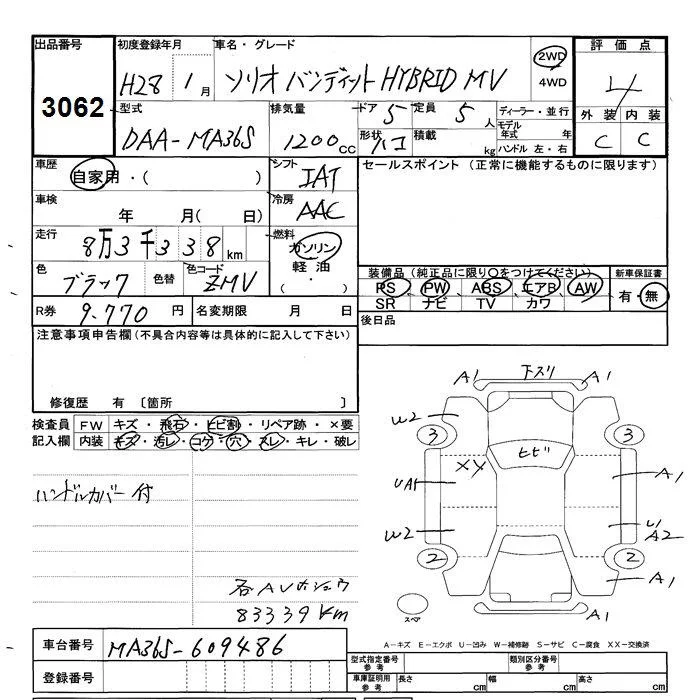 出品番号 初度登録年月 車名・グレード 評価点
3062 H28 1月 ソリオ バンディット HYBRID MV 2WD 4WD 4
型式 排気量 ドア 5 定員 5人 ディーラー・並行 外装 内装
DAA-MA36S 1200cc 形状 ハコ 積載 kg モデル年式 年 ハンドル 左・右 C C
車歴 自家用・( ) シフト IAT セールスポイント (正常に機能するものに限ります)
車検 年 月( 日) 冷房 AAC
走行 8万3千338km 燃料 ガソリン 軽油 ( ・ )
色 ブラック 色替 色コード ZMV
装備品 (純正品に限り○をつけてください) 新車保証書
PS PW ABS エアB AW 有・無
SR ナビ TV カワ
R券 9.770円 名変期限 月 日 後日品
注意事項申告欄(不具合内容等は具体的に記入して下さい)
修復歴 有 〔箇所 〕
検査員記入欄 FW キズ・飛石・ヒビ割・リペア跡・×要
内装 キズ・汚レ・コゲ・穴・スレ・キレ・破レ
ハンドルカバー付
83339km
A1 下スリ A1
W2
3 3
ヒビ
XX A1
W2 A2
2 2
A1
A1
スペア
車台番号 MA36S-609486
登録番号
A-キズ E-エクボ U-凹み W-補修跡 S-サビ C-腐食 XX-交換済
型式指定番号 参考 類別区分番号 参考
車庫証明用 参考 長さ cm 幅 cm 高さ cm